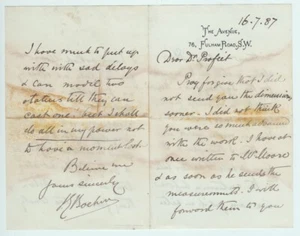 16.7.87
THE AVENUE,
76, FULHAM ROAD, S.W.
Dear Dr Profeit
Pray forgive that I did
not send you the dimensions
sooner. I did not think
you were so much advanced
with the work. I have at
once written to
& as soon as he sends the
measurements I will
forward them to you
I have much to put up
with with sad delays
& can model two
others till they can
cast one. rest I shall
do all in my power not
to have a moment lost
Believe me
yours sincerely
JEBoehm